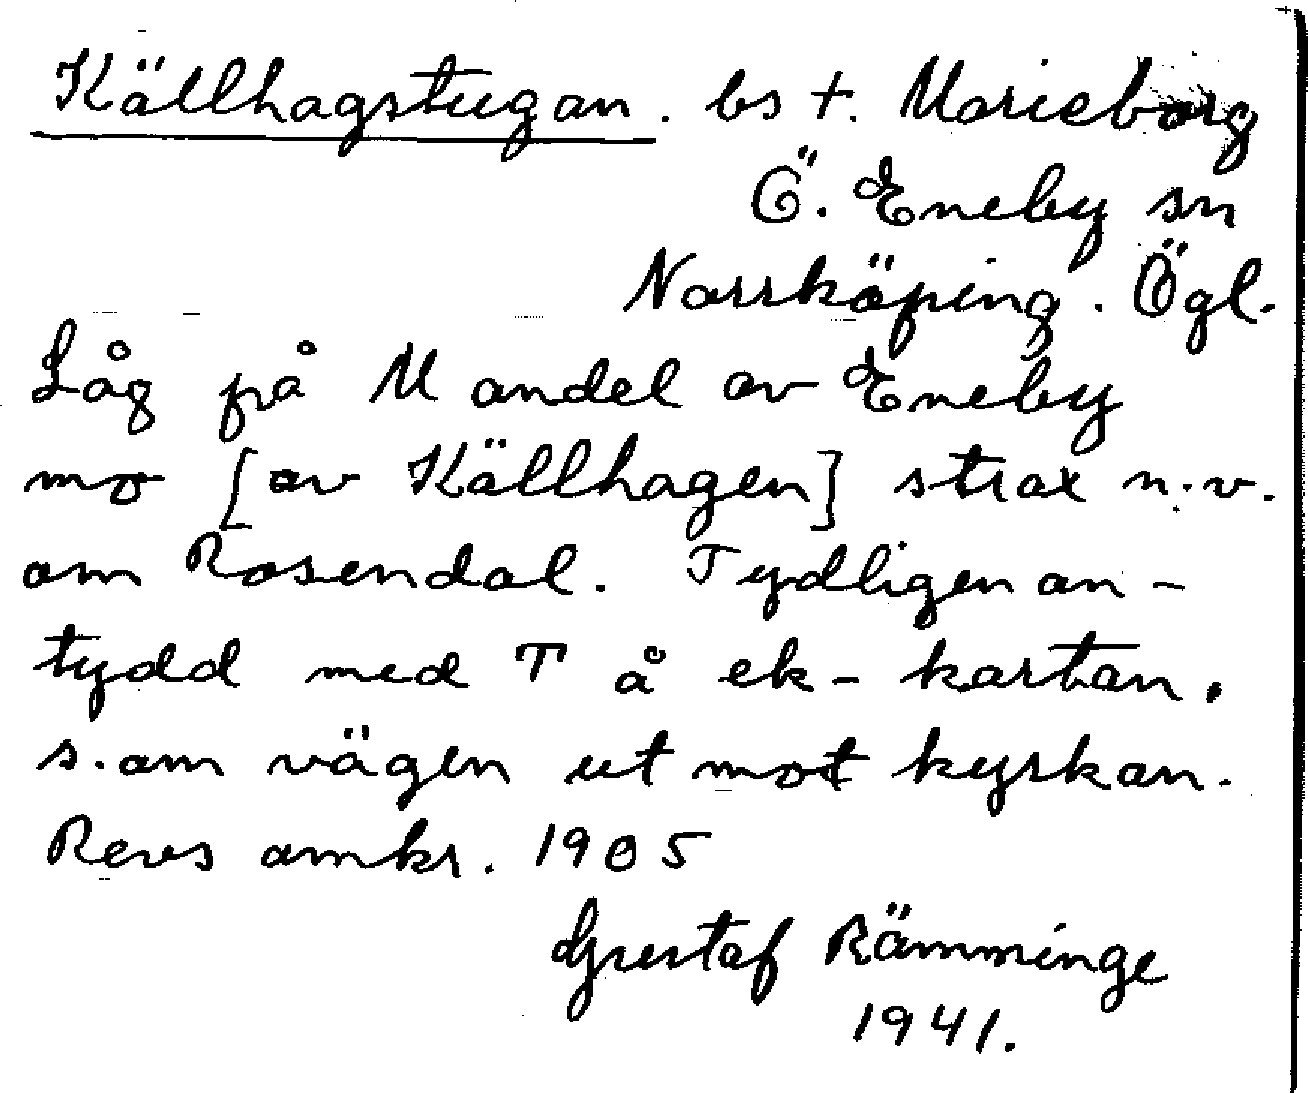 Källhagstugan. bs t. Marieborg
Ö. Eneby sn
Norrköping. Ögl.
Låg på M andel av Eneby
mo [av Källhagen] strax n.v.
om Rosendal. Tydligen an-
tydd med T å ek-kartan.
s. om vägen ut mot kyrkan.
Revs omkr. 1905
Gustaf Rämminge
1941.